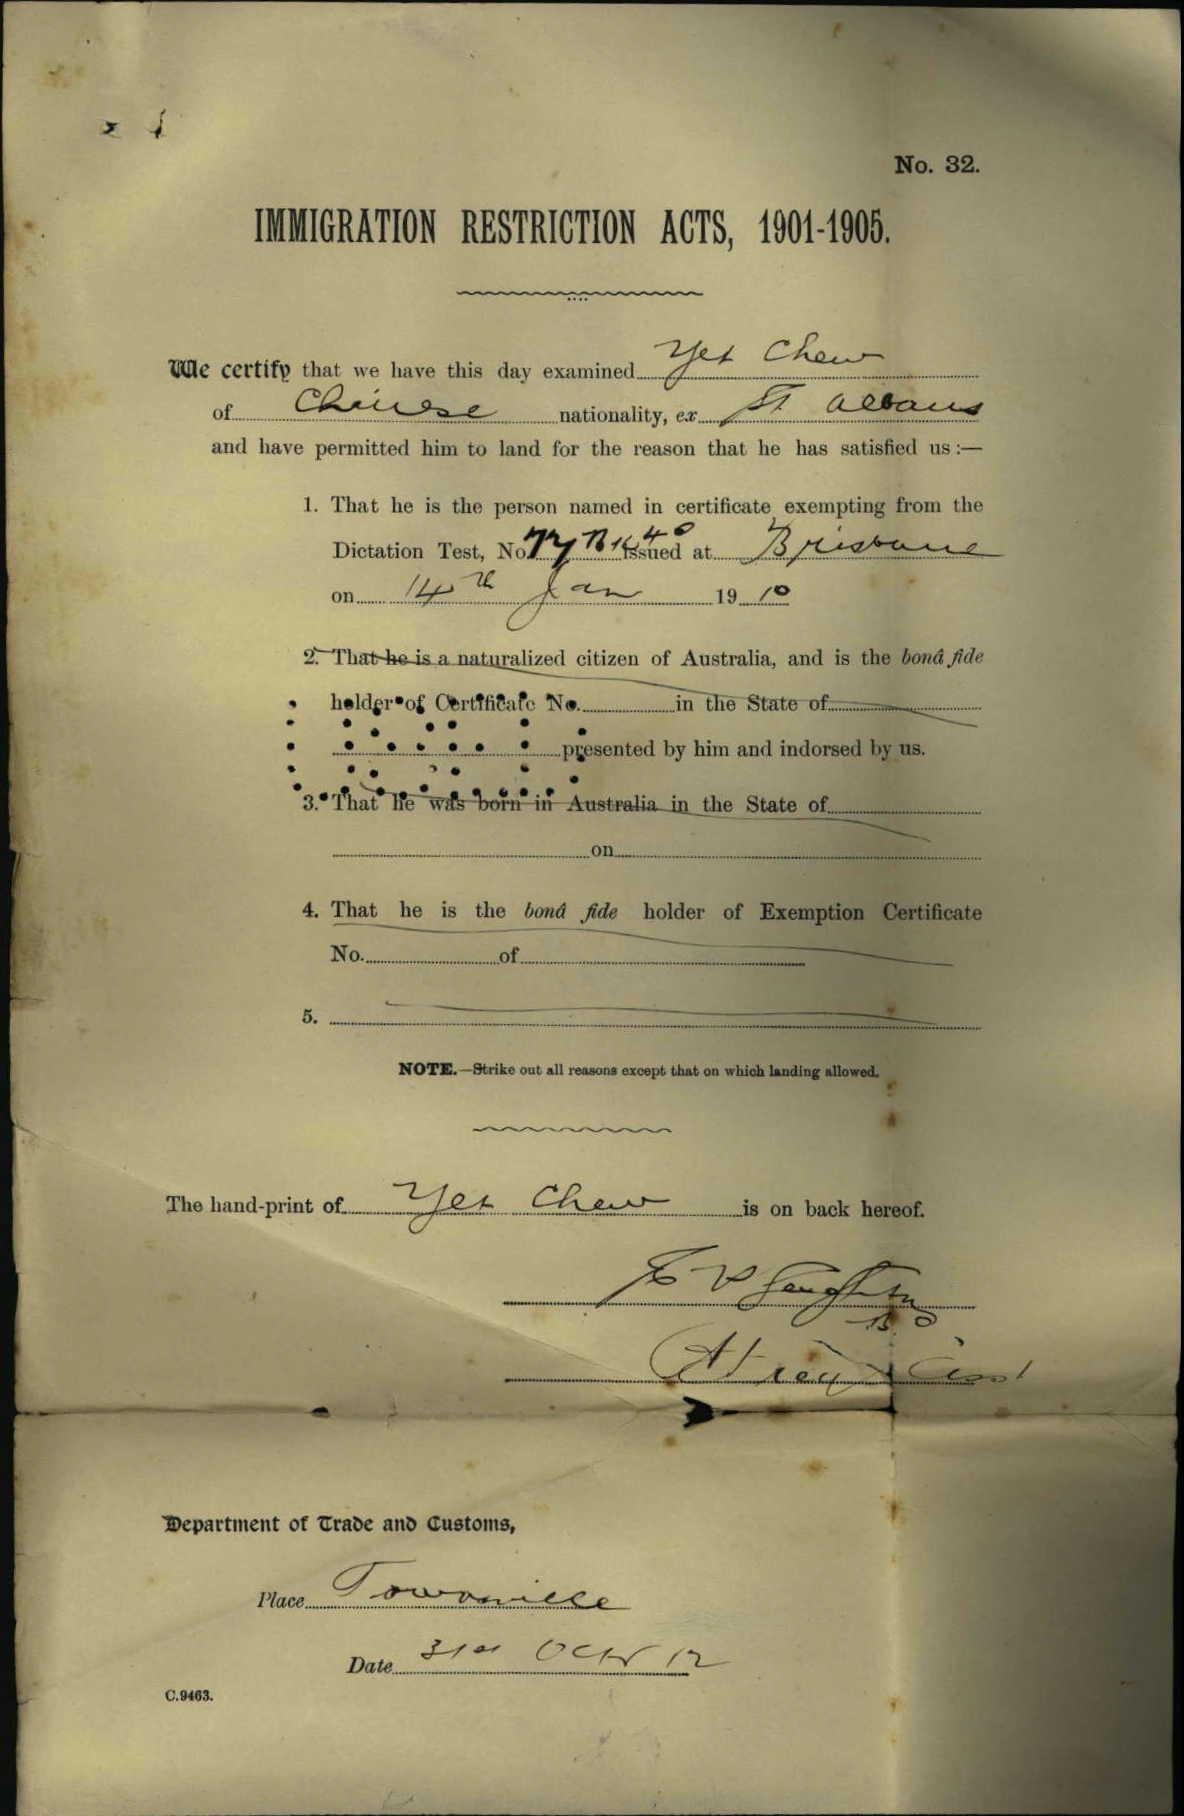 No. 32.
IMMIGRATION RESTRICTION ACTS, 1901-1905.
We certify that we have this day examined Yet Chew
of Chinese nationality, ex St Albans
and have permitted him to land for the reason that he has satisfied us :—
1. That he is the person named in certificate exempting from the
Dictation Test, No. 77 Bk 40 issued at Brisbane
on 14th Jan 1910
2. That he is a naturalized citizen of Australia, and is the bonâ fide
holder of Certificate No. in the State of
presented by him and indorsed by us.
3. That he was born in Australia in the State of
on
4. That he is the bonâ fide holder of Exemption Certificate
No. of
5.
NOTE.—Strike out all reasons except that on which landing allowed.
The hand-print of Yet Chew is on back hereof.
Department of Trade and Customs,
Place Townsville
Date 31st Octr 12
C.9463.